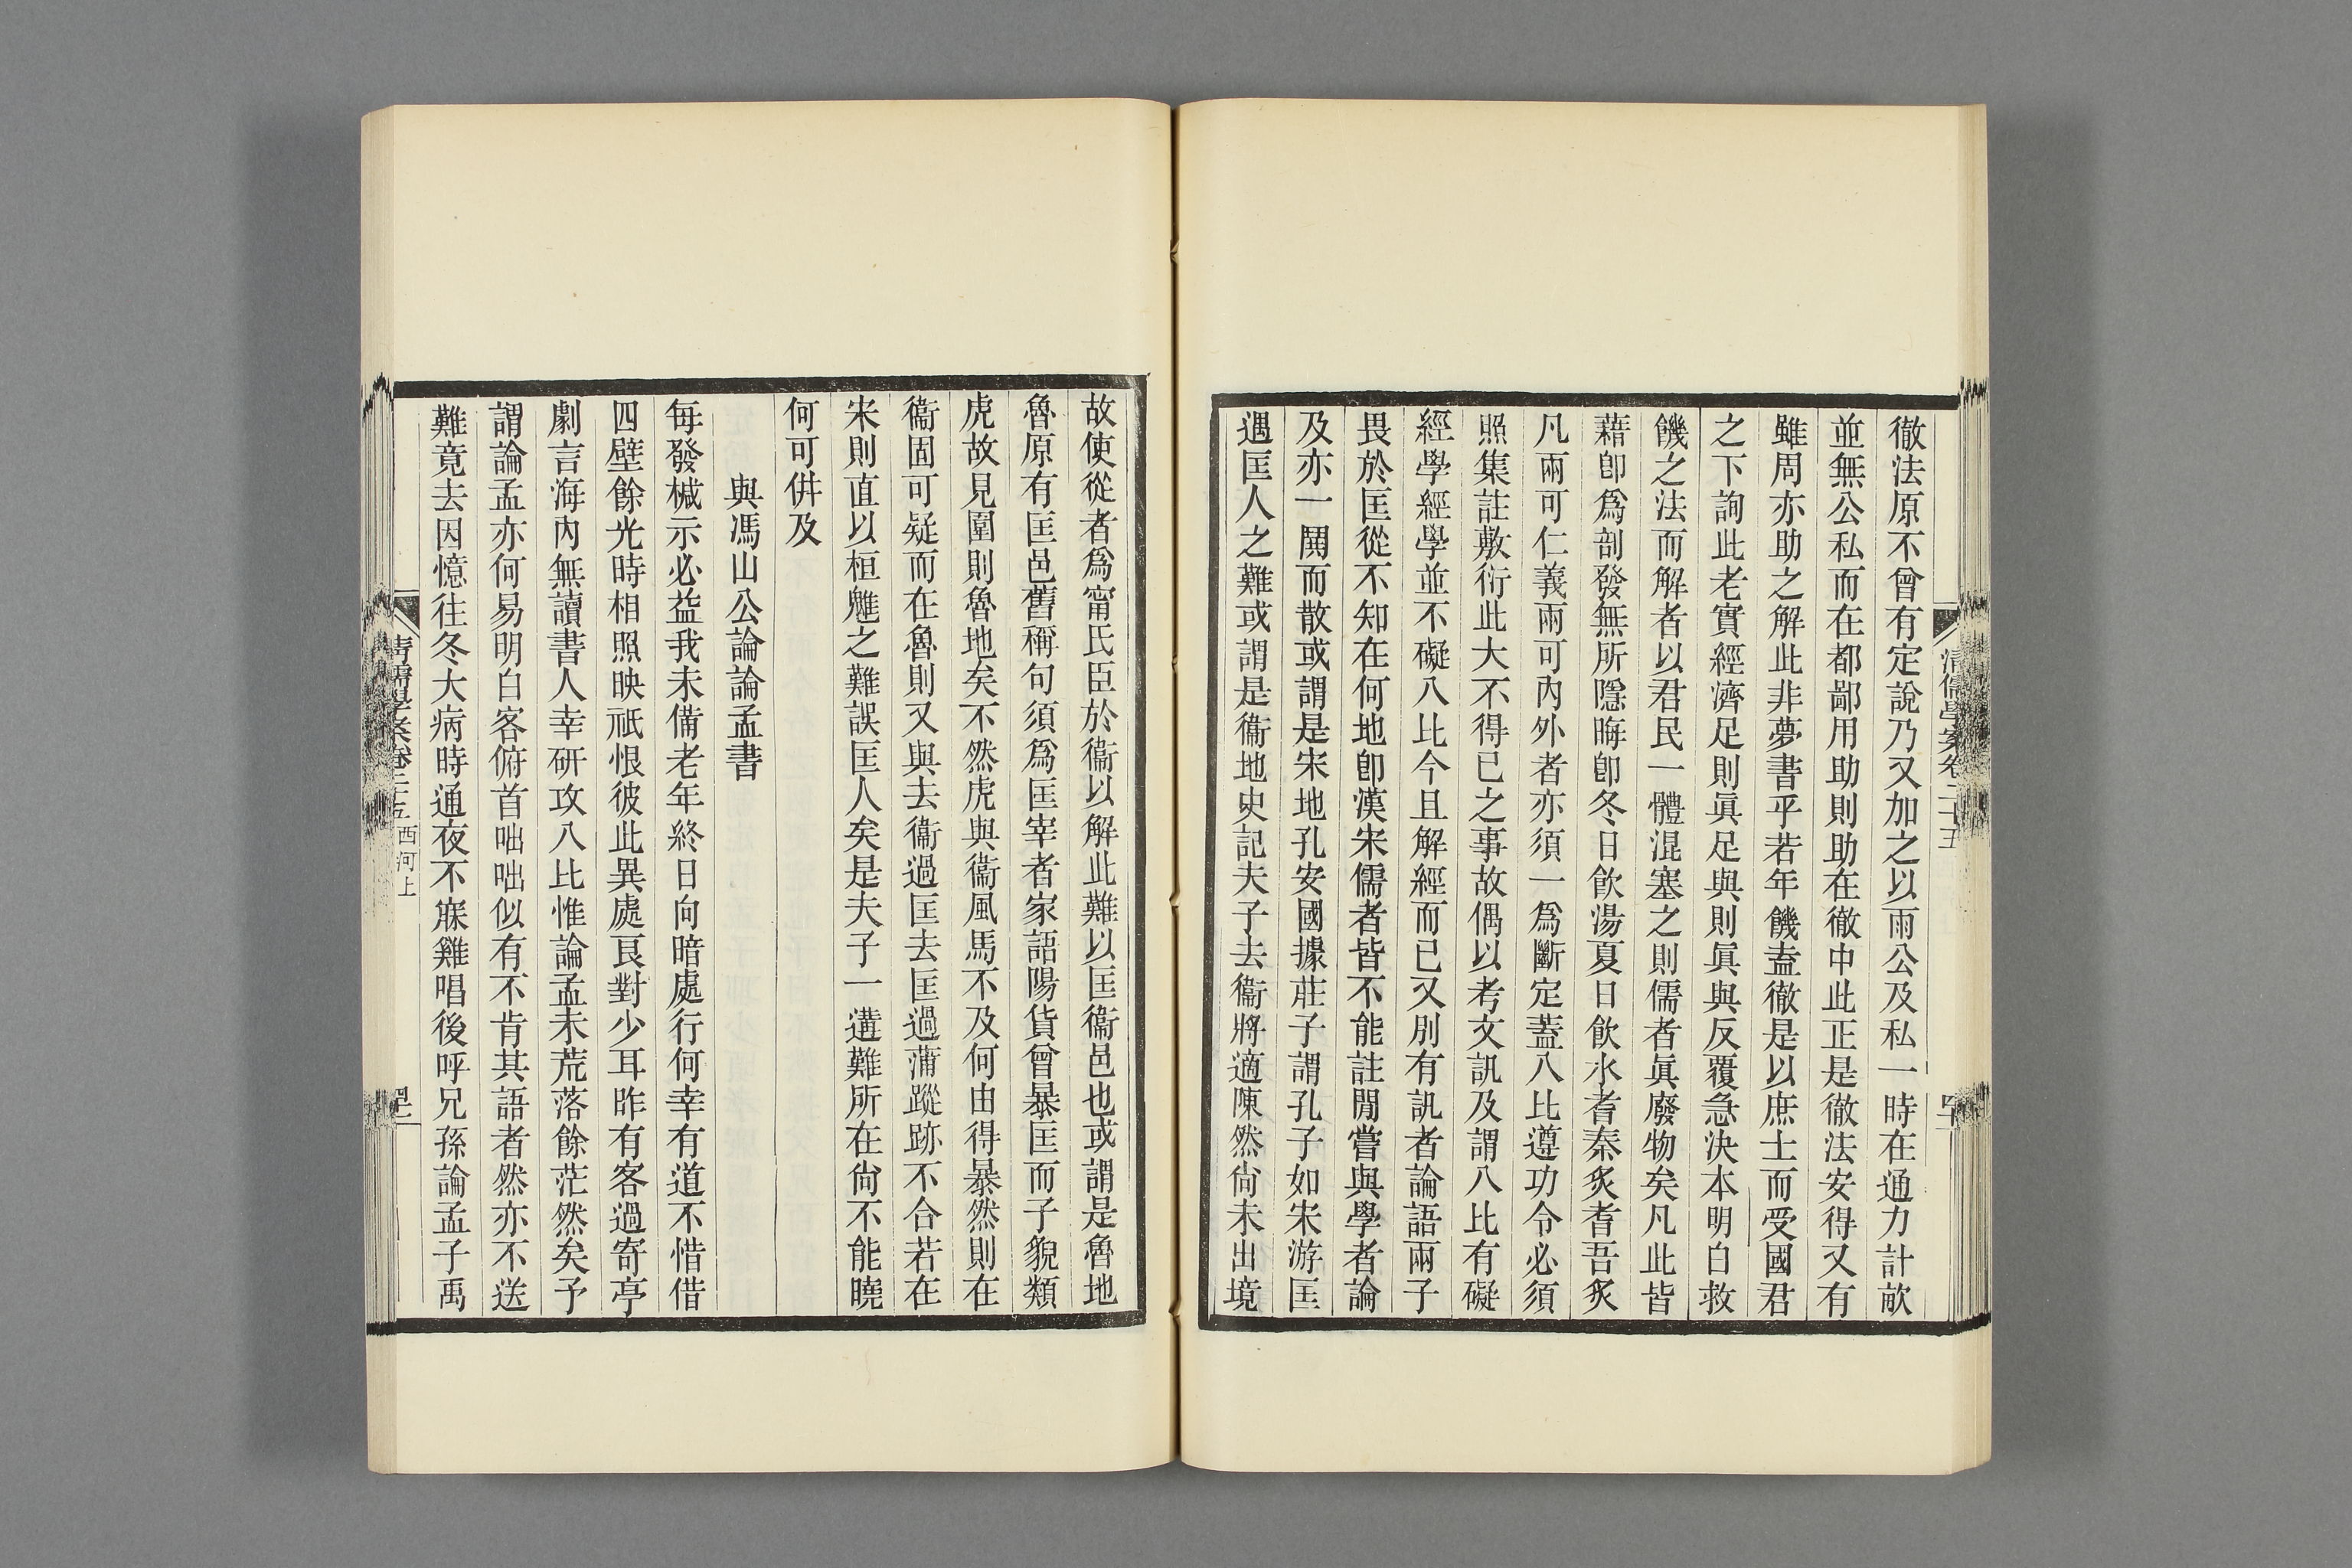 徹法原不曾有定說乃又加之以兩公及私一時在通力計畝
並無公私而在都鄙用助則助在徹中此正是徹法安得又有
雖周亦助之解此非夢書乎若年饑盍徹是以庶士而受國君
之下詢此老實經濟足則眞足與則眞與反覆急決本明白救
饑之法而解者以君民一體混塞之則儒者眞廢物矣凡此皆
藉卽爲剖發無所隱晦卽冬日飮湯夏日飮水耆秦炙耆吾炙
凡兩可仁義兩可內外者亦須一爲斷定蓋八比遵功令必須
照集註敷衍此大不得已之事故偶以考文訊及謂八比有礙
經學經學並不礙八比今且解經而已又別有訊者論語兩子
畏於匡從不知在何地卽漢宋儒者皆不能註閒嘗與學者論
及亦一鬨而散或謂是宋地孔安國據莊子謂孔子如宋游匡
遇匡人之難或謂是衞地史記夫子去衞將適陳然尙未出境
清儒學案卷二十五
故使從者爲甯氏臣於衞以解此難以匡衞邑也或謂是魯地
魯原有匡邑舊稱句須爲匡宰者家語陽貨曾暴匡而子貌類
虎故見圍則魯地矣不然虎與衞風馬不及何由得暴然則在
衞固可疑而在魯則又與去衞過匡去匡過蒲蹤跡不合若在
宋則直以桓魋之難誤匡人矣是夫子一遘難所在尙不能曉
何可倂及
與馮山公論論孟書
每發椷示必益我未備老年終日向暗處行何幸有道不惜借
四壁餘光時相照映祇恨彼此異處艮對少耳昨有客過寄亭
劇言海內無讀書人幸硏攻八比惟論孟未荒落餘茫然矣予
謂論孟亦何易明白客俯首咄咄似有不肯其語者然亦不送
難竟去因憶往冬大病時通夜不寐雞唱後呼兄孫論孟子禹
清儒學案卷二十五 西河上